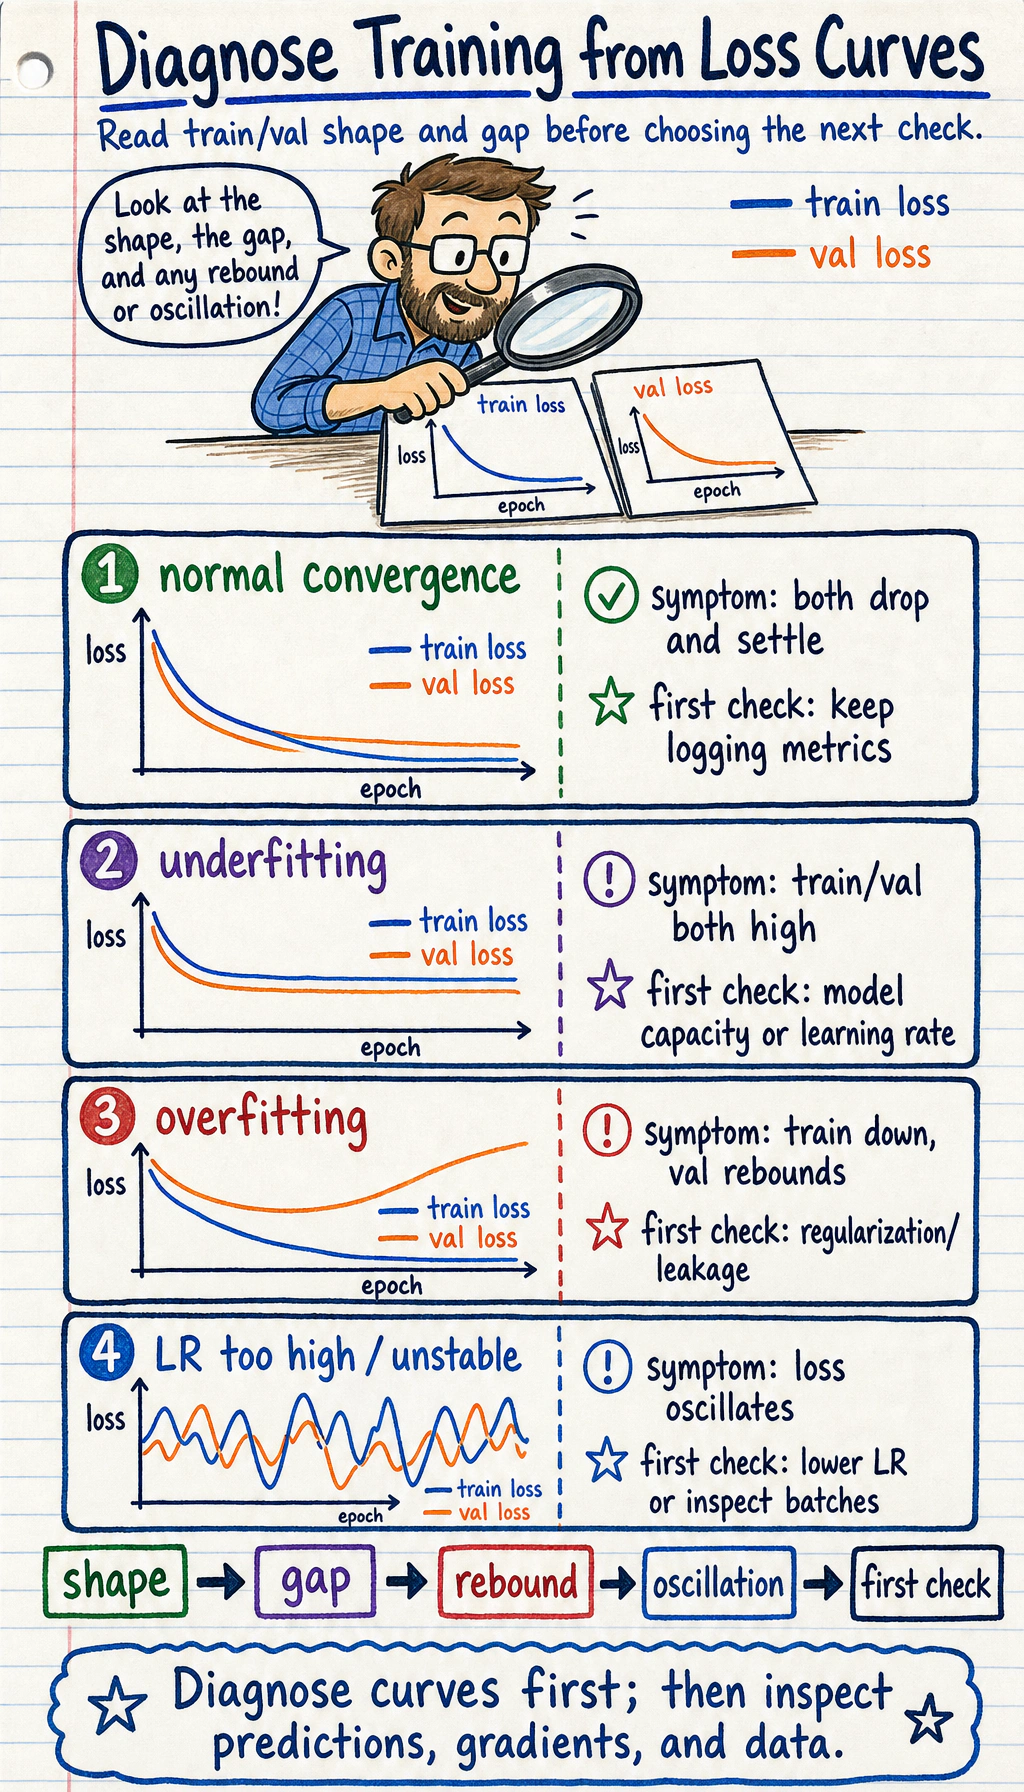 Diagnose Training from Loss Curves
Read train/val shape and gap before choosing the next check.
Look at the
shape, the gap,
and any rebound
or oscillation!
train loss
val loss
train loss
loss
epoch
val loss
loss
epoch
1 normal convergence
loss
train loss
val loss
epoch
symptom: both drop
and settle
first check: keep
logging metrics
2 underfitting
loss
train loss
val loss
epoch
symptom: train/val
both high
first check: model
capacity or learning rate
3 overfitting
loss
train loss
val loss
epoch
symptom: train down,
val rebounds
first check: regularization/
leakage
4 LR too high / unstable
loss
train loss
val loss
epoch
symptom: loss
oscillates
first check: lower LR
or inspect batches
shape
gap
rebound
oscillation
first check
Diagnose curves first; then inspect
predictions, gradients, and data.